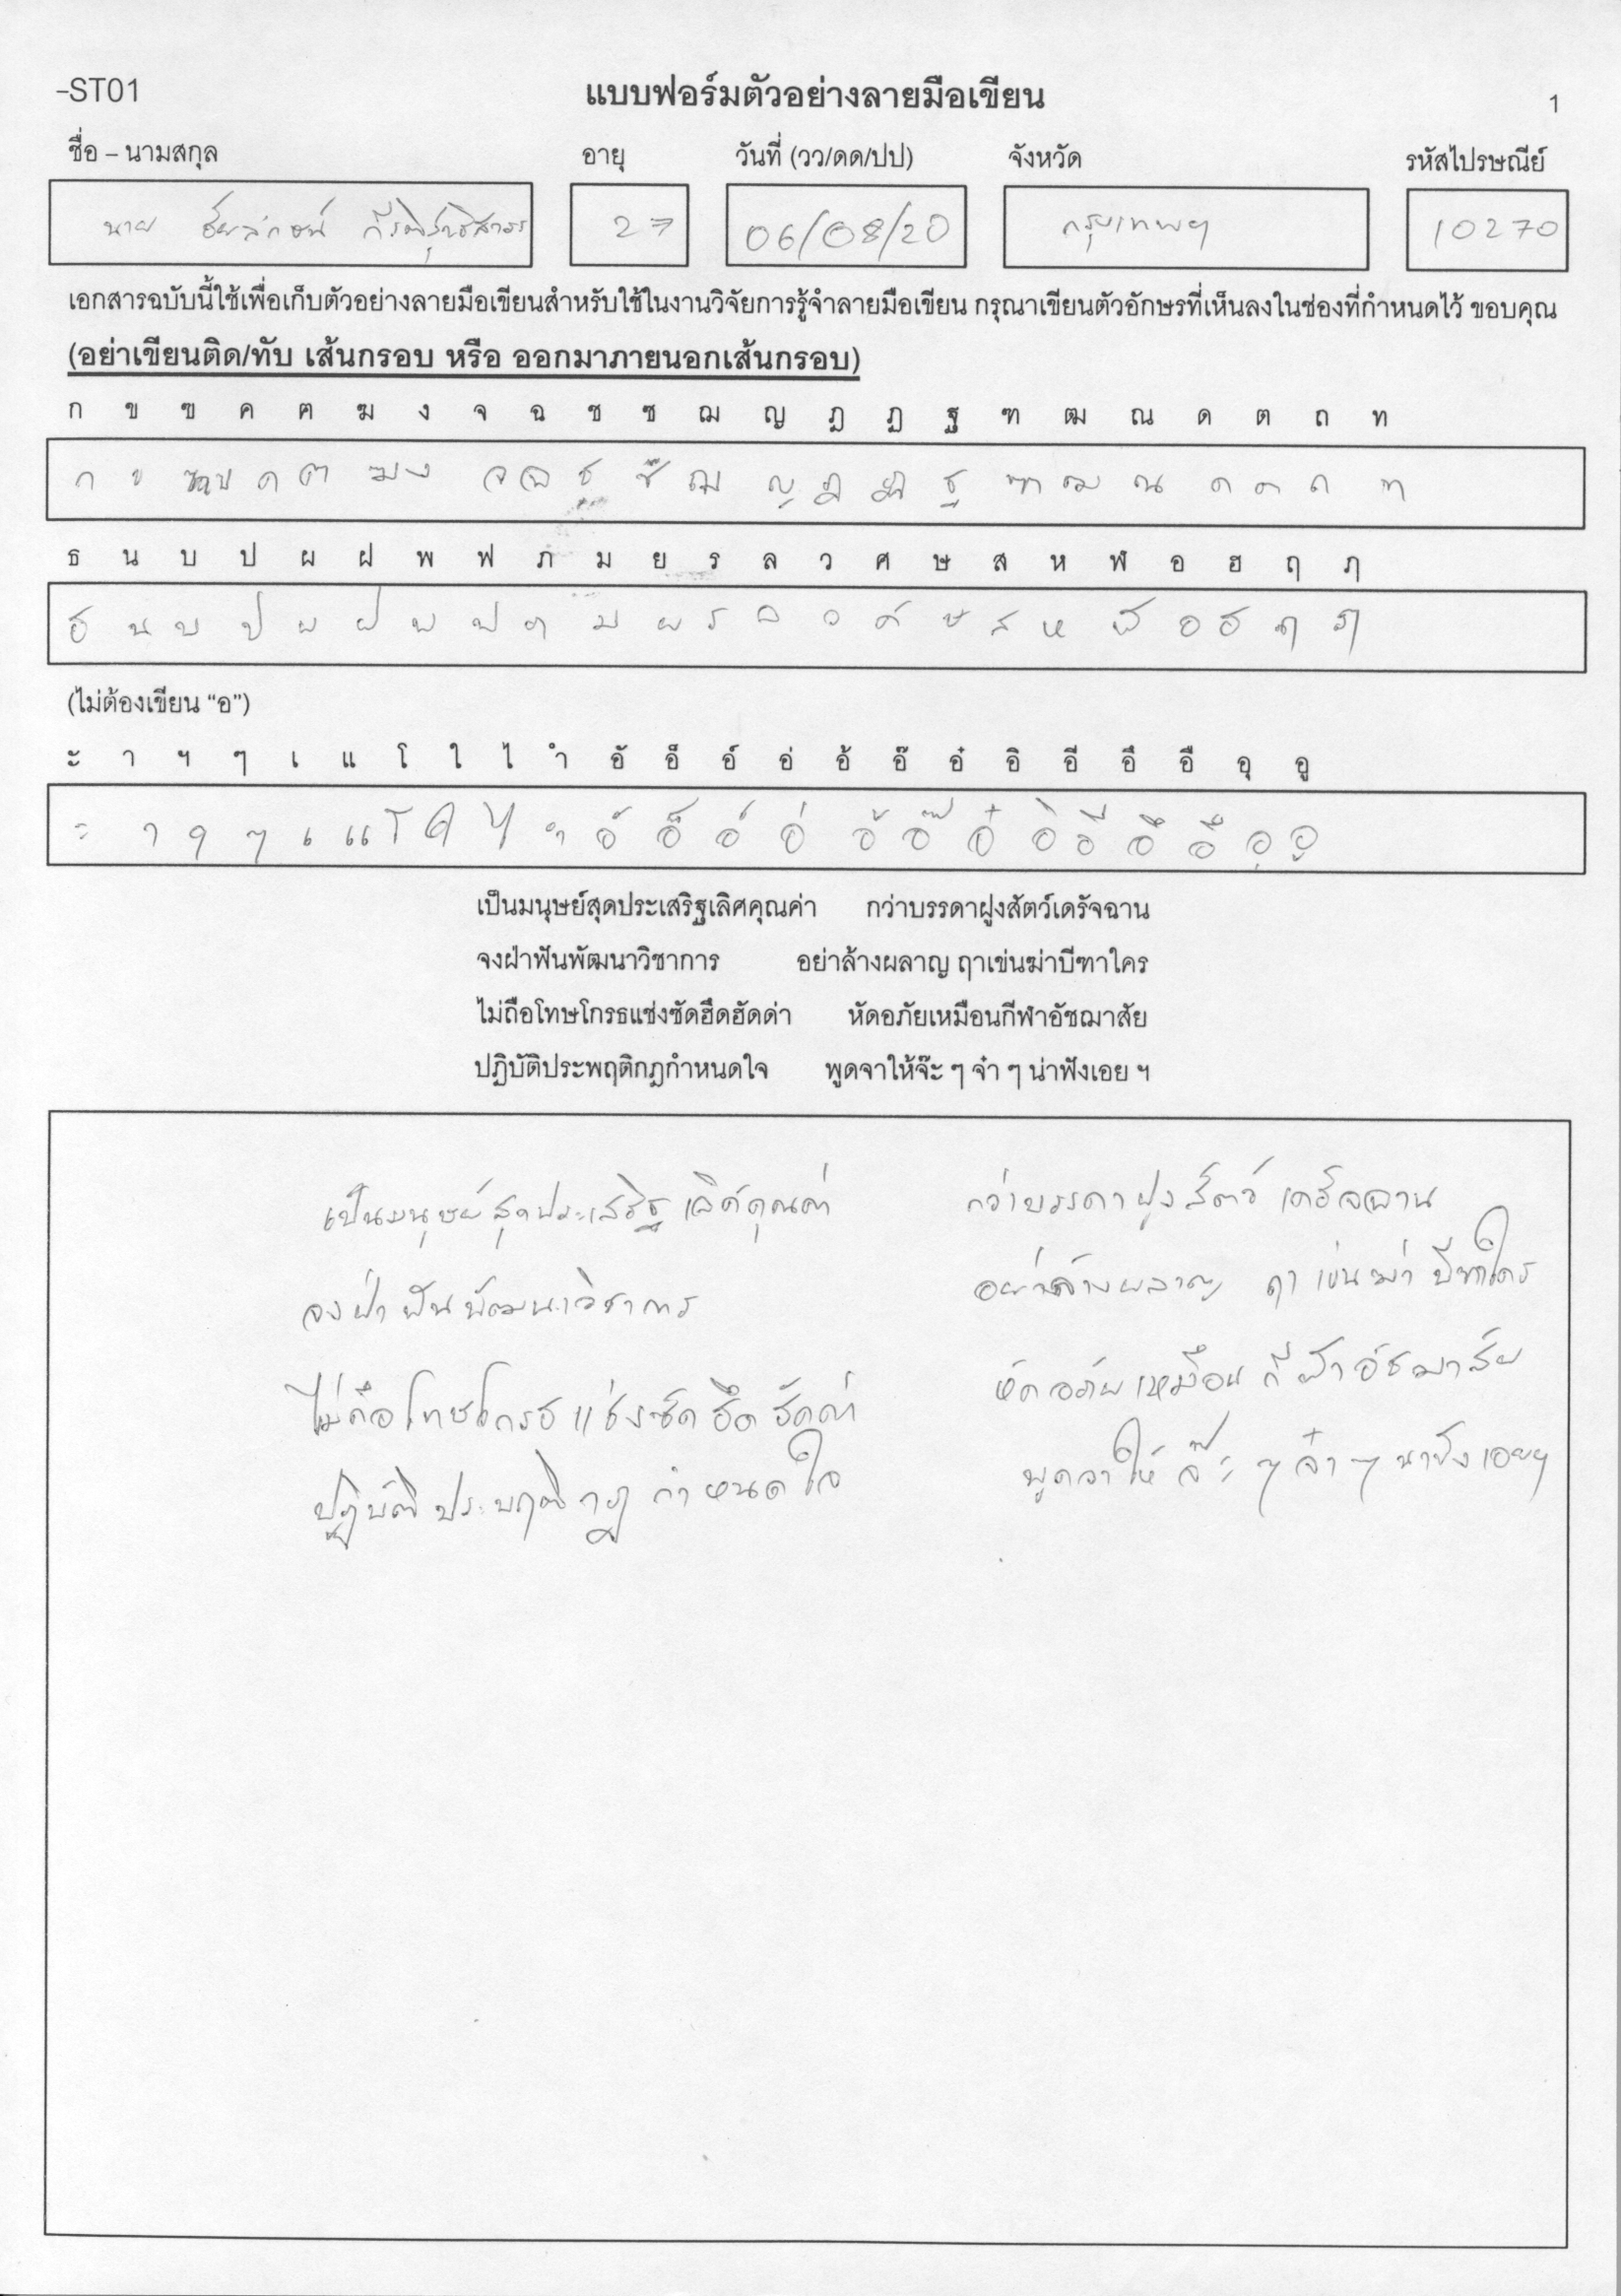 -ST01
แบบฟอร์มตัวอย่างลายมือเขียน
1
ชื่อ – นามสกุล อายุ วันที่ (วว/ดด/ปป) จังหวัด รหัสไปรษณีย์
นาย 27 06/08/20 กรุงเทพฯ 10270
เอกสารฉบับนี้ใช้เพื่อเก็บตัวอย่างลายมือเขียนสำหรับใช้ในงานวิจัยการรู้จำลายมือเขียน กรุณาเขียนตัวอักษรที่เห็นลงในช่องที่กำหนดไว้ ขอบคุณ
(อย่าเขียนติด/ทับ เส้นกรอบ หรือ ออกมาภายนอกเส้นกรอบ)
ก ข ฃ ค ฅ ฆ ง จ ฉ ช ซ ฌ ญ ฎ ฏ ฐ ฑ ฒ ณ ด ต ถ ท
ก ข ฃ ค ฅ ฆ ง จ ฉ ช ซ ฌ ญ ฎ ฏ ฐ ฑ ฒ ณ ด ต ถ ท
ธ น บ ป ผ ฝ พ ฟ ภ ม ย ร ล ว ศ ษ ส ห ฬ อ ฮ ฤ ฦ
ธ น บ ป ผ ฝ พ ฟ ภ ม ย ร ล ว ศ ษ ส ห ฬ อ ฮ ฤ ฦ
(ไม่ต้องเขียน “อ”)
ะ า ฯ ๆ เ แ โ ใ ไ ำ อั อ็ อ์ อ่ อ้ อ๊ อ๋ อิ อี อึ อื อุ อู
ะ า ฯ ๆ เ แ โ ใ ไ ำ อั อ็ อ์ อ่ อ้ อ๊ อ๋ อิ อี อึ อื อุ อู
เป็นมนุษย์สุดประเสริฐเลิศคุณค่า กว่าบรรดาฝูงสัตว์เดรัจฉาน
จงฝ่าฟันพัฒนาวิชาการ อย่าล้างผลาญ ฤาเข่นฆ่าบีฑาใคร
ไม่ถือโทษโกรธแช่งซัดฮึดฮัดด่า หัดอภัยเหมือนกีฬาอัชฌาสัย
ปฏิบัติประพฤติกฎกำหนดใจ พูดจาให้จ๊ะ ๆ จ๋า ๆ น่าฟังเอย ฯ
เป็นมนุษย์สุดประเสริฐ เลิศคุณค่า กว่าบรรดาฝูงสัตว์ เดรัจฉาน
จงฝ่า ฟัน พัฒนาวิชาการ อย่าล้างผลาญ ฤา เข่นฆ่า บีฑาใคร
ไม่ถือ โทษโกรธ แช่งซัด ฮึด ฮัดด่า หัด อภัย เหมือน กีฬา อัชฌาสัย
ปฏิบัติ ประพฤติ กฎ กำหนด ใจ พูดจาให้ จ๊ะ ๆ จ๋า ๆ นาฟัง เอยฯ